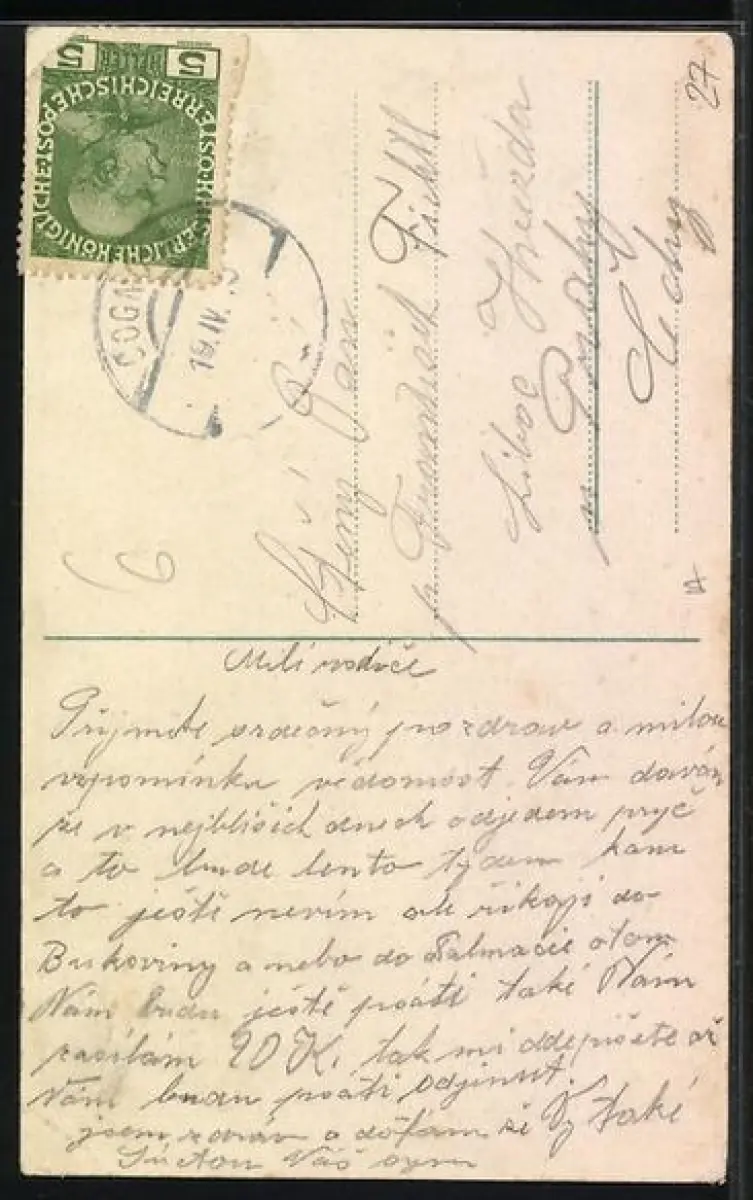 5 HELLER 5
KAIS. KÖNIGLICHE ÖSTERREICHISCHE POST
19.IV.
27
6
Pan
František Fichtl
Liboc Hvězda
u Prahy
Čechy
Milí rodiče
Přijměte srdečný pozdrav a milou
vzpomínku vědomost Vám dávám
že v nejbližších dnech odjedem pryč
a to bude tento týden kam
to ještě nevím ale říkají do
Bukoviny a nebo do Dalmacie o tom
Vám budu ještě psáti také Vám
zasílám 20 K, tak mi odepište až
Vám budu psáti odjinut.
jsem zdráv a doufám že Vy také
S úctou Váš syn